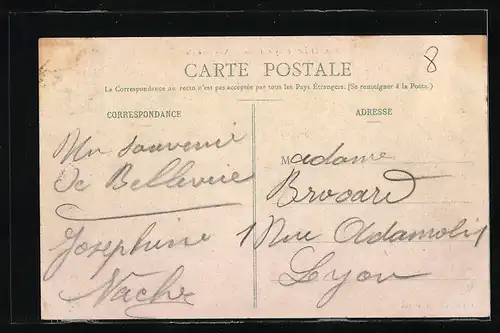 8
CARTE POSTALE
La Correspondance au recto n'est pas acceptée par tous les Pays Étrangers. (Se renseigner à la Poste.)
CORRESPONDANCE
Un souvenir
de Bellevue
Josephine
Vache
ADRESSE
Madame
Brocard
1 Rue Adamoli
Lyon